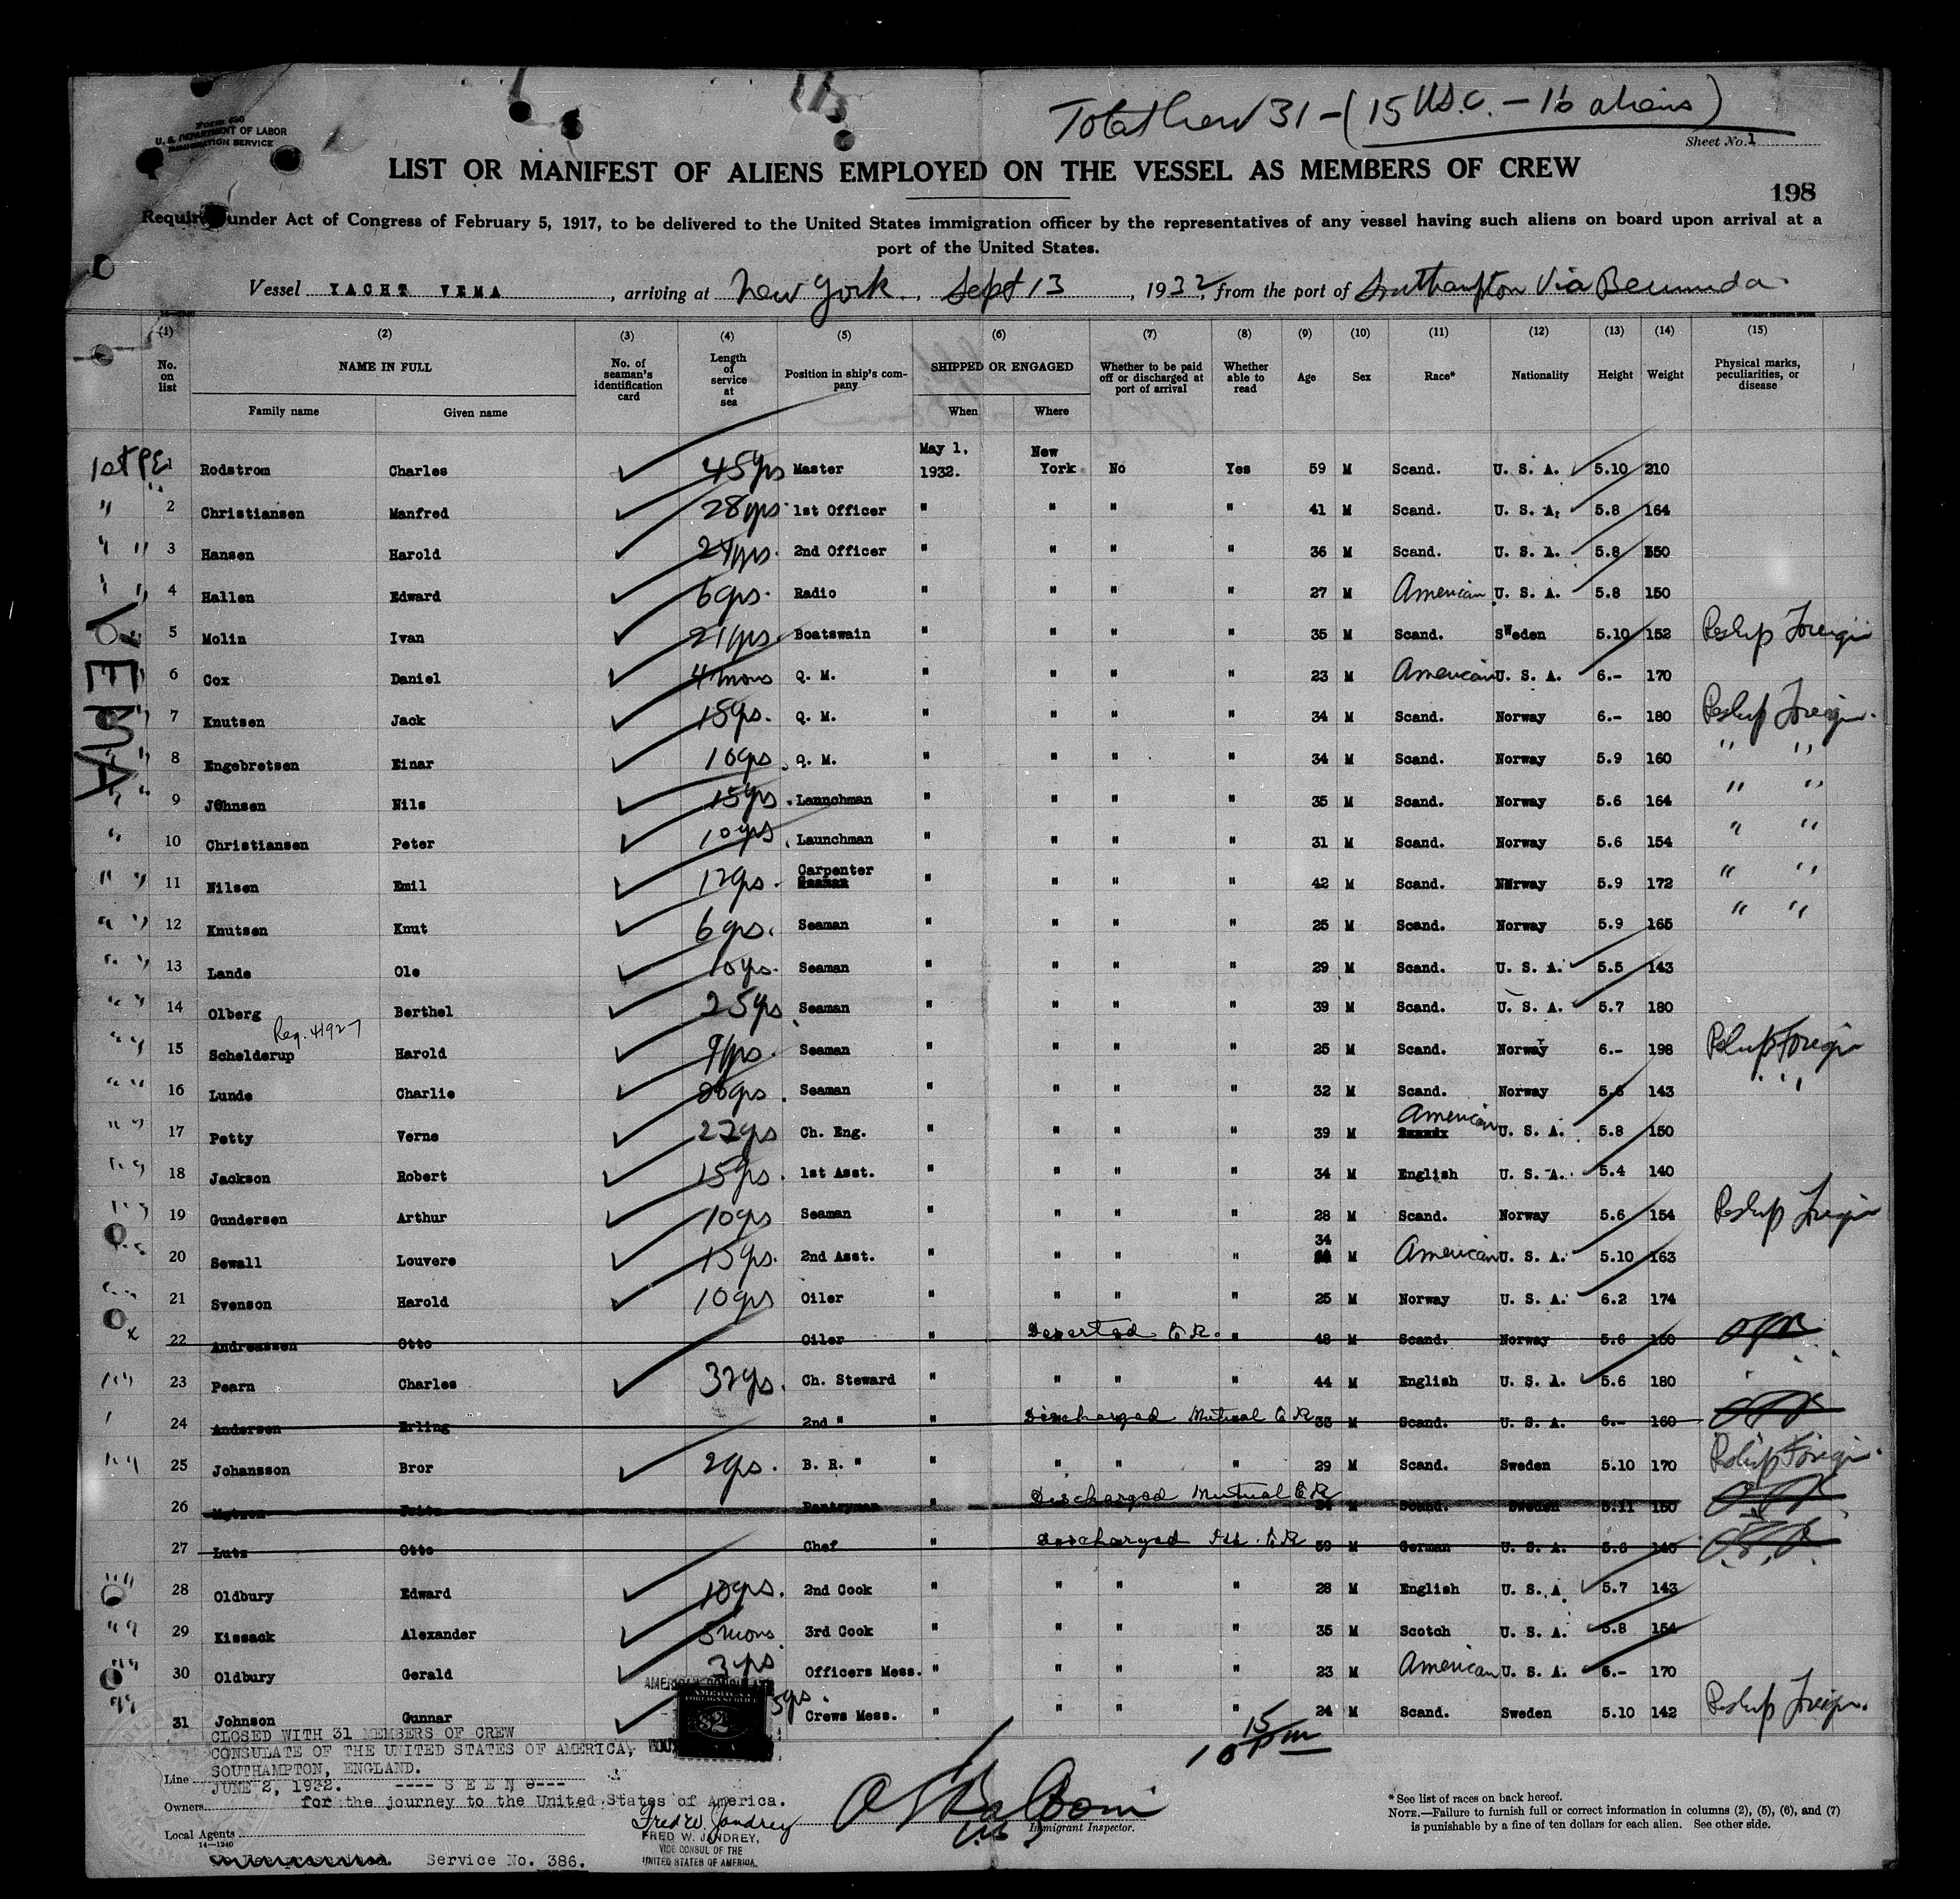 Total Crew 31 - (15 U.S.C. - 16 aliens)
Form 680
U. S. DEPARTMENT OF LABOR
IMMIGRATION SERVICE
Sheet No. 1
LIST OR MANIFEST OF ALIENS EMPLOYED ON THE VESSEL AS MEMBERS OF CREW
198
Required under Act of Congress of February 5, 1917, to be delivered to the United States immigration officer by the representatives of any vessel having such aliens on board upon arrival at a
port of the United States.
Vessel YACHT VEMA, arriving at New York, Sept 13, 1932, from the port of Southampton Via Bermuda
(1) (2) (3) (4) (5) (6) (7) (8) (9) (10) (11) (12) (13) (14) (15)
No. on list NAME IN FULL Family name Given name No. of seaman's identification card Length of service at sea Position in ship's company SHIPPED OR ENGAGED When Where Whether to be paid off or discharged at port of arrival Whether able to read Age Sex Race* Nationality Height Weight Physical marks, peculiarities, or disease
VEMA
1 Rodstrom Charles 45yrs Master May 1, 1932. New York No Yes 59 M Scand. U. S. A. 5.10 210
2 Christiansen Manfred 28yrs 1st Officer " " " " 41 M Scand. U. S. A. 5.8 164
3 Hansen Harold yrs. 2nd Officer " " " " 36 M Scand. U. S. A. 5.8
4 Hallen Edward 6yrs. Radio " " " " 27 M American U. S. A. 5.8 150
5 Molin Ivan 21yrs Boatswain " " " " 35 M Scand. Sweden 5.10 152 Reship Foreign
6 Cox Daniel 4 mons Q. M. " " " " 23 M American U. S. A. 6.- 170
7 Knutsen Jack 15yrs. Q. M. " " " " 34 M Scand. Norway 6.- 180 Reship Foreign.
8 Engebretsen Einar 10yrs Q. M. " " " " 34 M Scand. Norway 5.9 160 " "
9 Johnsen Nils 15yrs Launchman " " " " 35 M Scand. Norway 5.6 164 " "
10 Christiansen Peter 10yrs Launchman " " " 31 M Scand. Norway 5.6 154 " "
11 Nilsen Emil 12yrs. Carpenter Seaman " " " " 42 M Scand. Norway 5.9 172 " "
12 Knutsen Knut 6yrs. Seaman " " " " 25 M Scand. Norway 5.9 165 " "
13 Lande Ole 10yrs. Seaman " " " " 29 M Scand. U. S. A. 5.5 143
14 Olberg Berthel 25yrs Seaman " " " " 39 M Scand. U. S. A. 5.7 180
Reg. 41927
15 Schelderup Harold 9yrs. Seaman " " " " 25 M Scand. Norway 6.- 198 Reship Foreign
16 Lunde Charlie yrs. Seaman " " " " 32 M Scand. Norway 5.6 143 " "
17 Petty Verne 22yrs Ch. Eng. " " " " 39 M American U. S. A. 5.8 150
18 Jackson Robert 15yrs. 1st Asst. " " " " 34 M English U. S. A. 5.4 140
19 Gundersen Arthur 10yrs Seaman " " " " 28 M Scand. Norway 5.6 154 Reship Foreign
20 Sewall Louvere 15yrs. 2nd Asst. " " " " 34 M American U. S. A. 5.10 163
21 Svenson Harold 10yrs Oiler " " " " 25 M Norway U. S. A. 6.2 174
22 Andreassen Otto Oiler " Deserted " 48 M Scand. Norway 5.6 160
23 Pearn Charles 32yrs. Ch. Steward " " " " 44 M English U. S. A. 5.6 180
24 Andersen Erling 2nd " " Discharged Mutual M Scand. U. S. A. 6.- 160
25 Johansson Bror 2yrs. B. R. " " " " " 29 M Scand. Sweden 5.10 170 Reship Foreign.
26 Pantryman " Discharged Mutual M Scand. Sweden 5.11 150
27 Lutz Otto Chef " Discharged 59 M German U. S. A. 5.6 145
28 Oldbury Edward 10yrs. 2nd Cook " " " " 28 M English U. S. A 5.7 143
29 Kissack Alexander 5 mons 3rd Cook " " " " 35 M Scotch U. S. A. 5.8 154
30 Oldbury Gerald 3 yrs Officers Mess. " " " " 23 M American U. S. A. 6.- 170
31 Johnson Gunnar 5yrs. Crews Mess. " " " " 24 M Scand. Sweden 5.10 142 Reship Foreign.
AMERICAN CONSULATE
AMERICAN
FOREIGN SERVICE
$2
CLOSED WITH 31 MEMBERS OF CREW
CONSULATE OF THE UNITED STATES OF AMERICA,
SOUTHAMPTON, ENGLAND.
Line JUNE 2, 1932. ---- S E E N ----
Owners for the journey to the United States of America.
Local Agents
14-1240
Service No. 386.
Fred W. Jandrey
FRED W. JANDREY,
VICE CONSUL OF THE
UNITED STATES OF AMERICA.
Immigrant Inspector.
* See list of races on back hereof.
NOTE.—Failure to furnish full or correct information in columns (2), (5), (6), and (7)
is punishable by a fine of ten dollars for each alien. See other side.